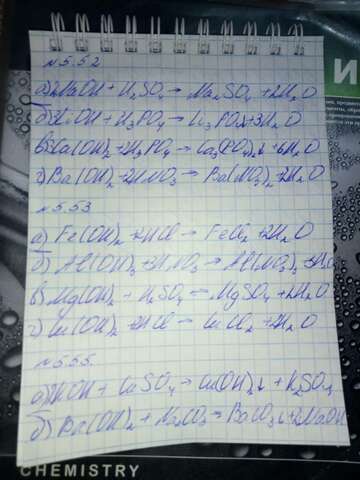 №5.52
а) 2NaOH + H₂SO₄ → Na₂SO₄ + 2H₂O
б) 3LiOH + H₃PO₄ → Li₃PO₄ + 3H₂O
в) 3Ca(OH)₂ + 2H₃PO₄ → Ca₃(PO₄)₂↓ + 6H₂O
г) Ba(OH)₂ + 2HNO₃ → Ba(NO₃)₂ + 2H₂O
№5.53
а) Fe(OH)₂ + 2HCl → FeCl₂ + 2H₂O
б) Al(OH)₃ + 3HNO₃ → Al(NO₃)₃ + 3H₂O
в) Mg(OH)₂ + H₂SO₄ → MgSO₄ + 2H₂O
г) Cu(OH)₂ + 2HCl → CuCl₂ + 2H₂O
№5.55
а) 2KOH + CuSO₄ → Cu(OH)₂↓ + K₂SO₄
б) Ba(OH)₂ + Na₂CO₃ → BaCO₃↓ + 2NaOH
CHEMISTRY
И